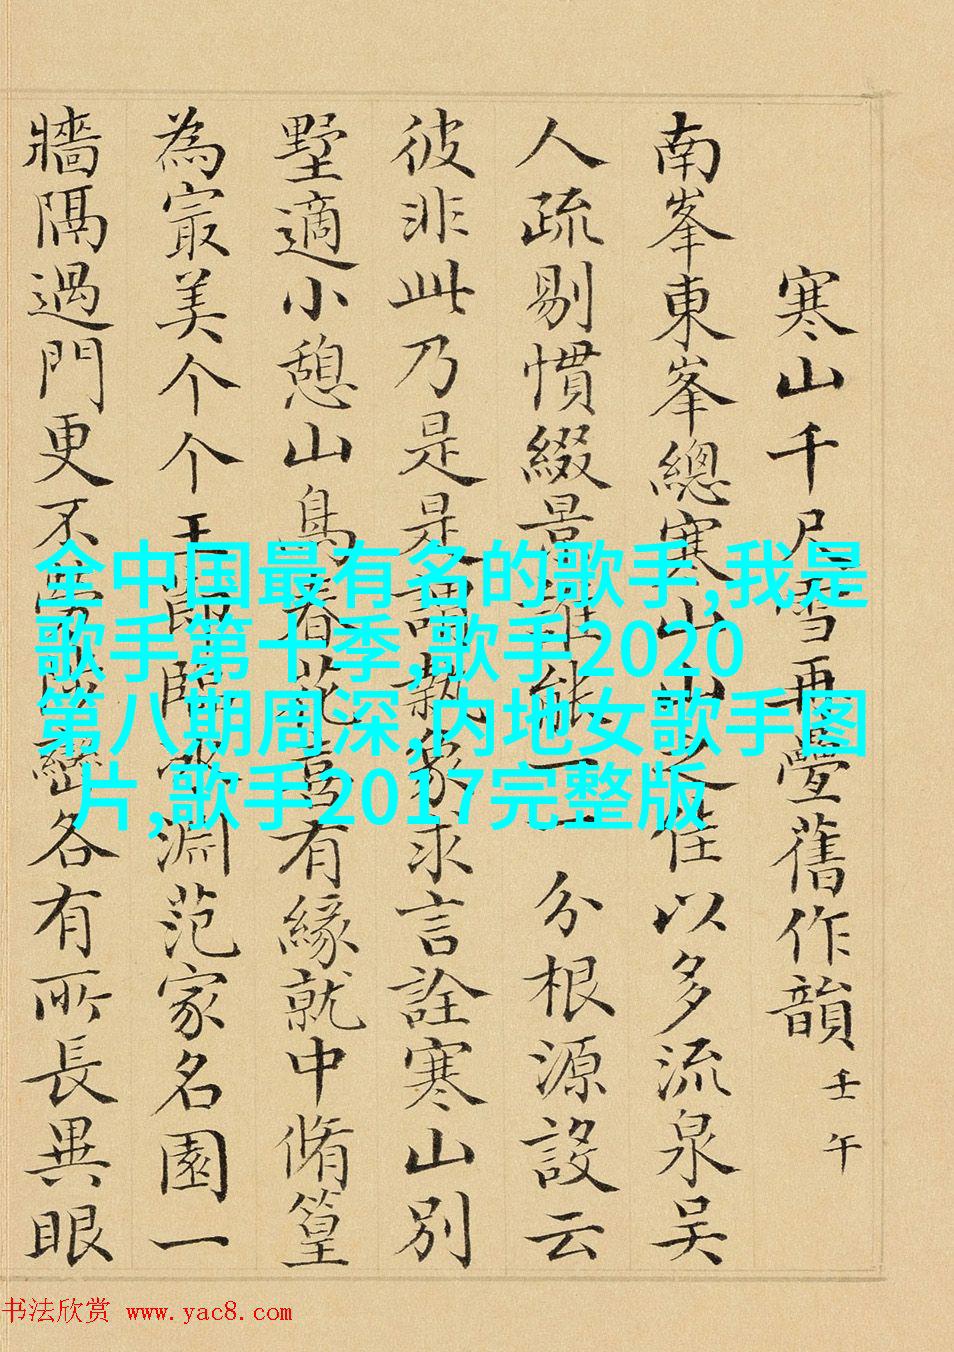 寒山千尺雪再疊舊作韻 壬午
南峯東峯總寒山山之佳以多流泉吳
人疏剔慣綴景誰能一一分根源設云
彼非此乃是是謂執象求言詮寒山別
墅適小憩山鳥春花喜有緣就中脩篁
為㝡美个个玉臨淵范家名園一
牆隔過門更不勞巒各有所長異眼
全中国最有名的歌手,我是
歌手第十季,歌手2020
第八期周深,内地女歌手图
片,歌手2017完整版
书法欣赏 www.yac8.com